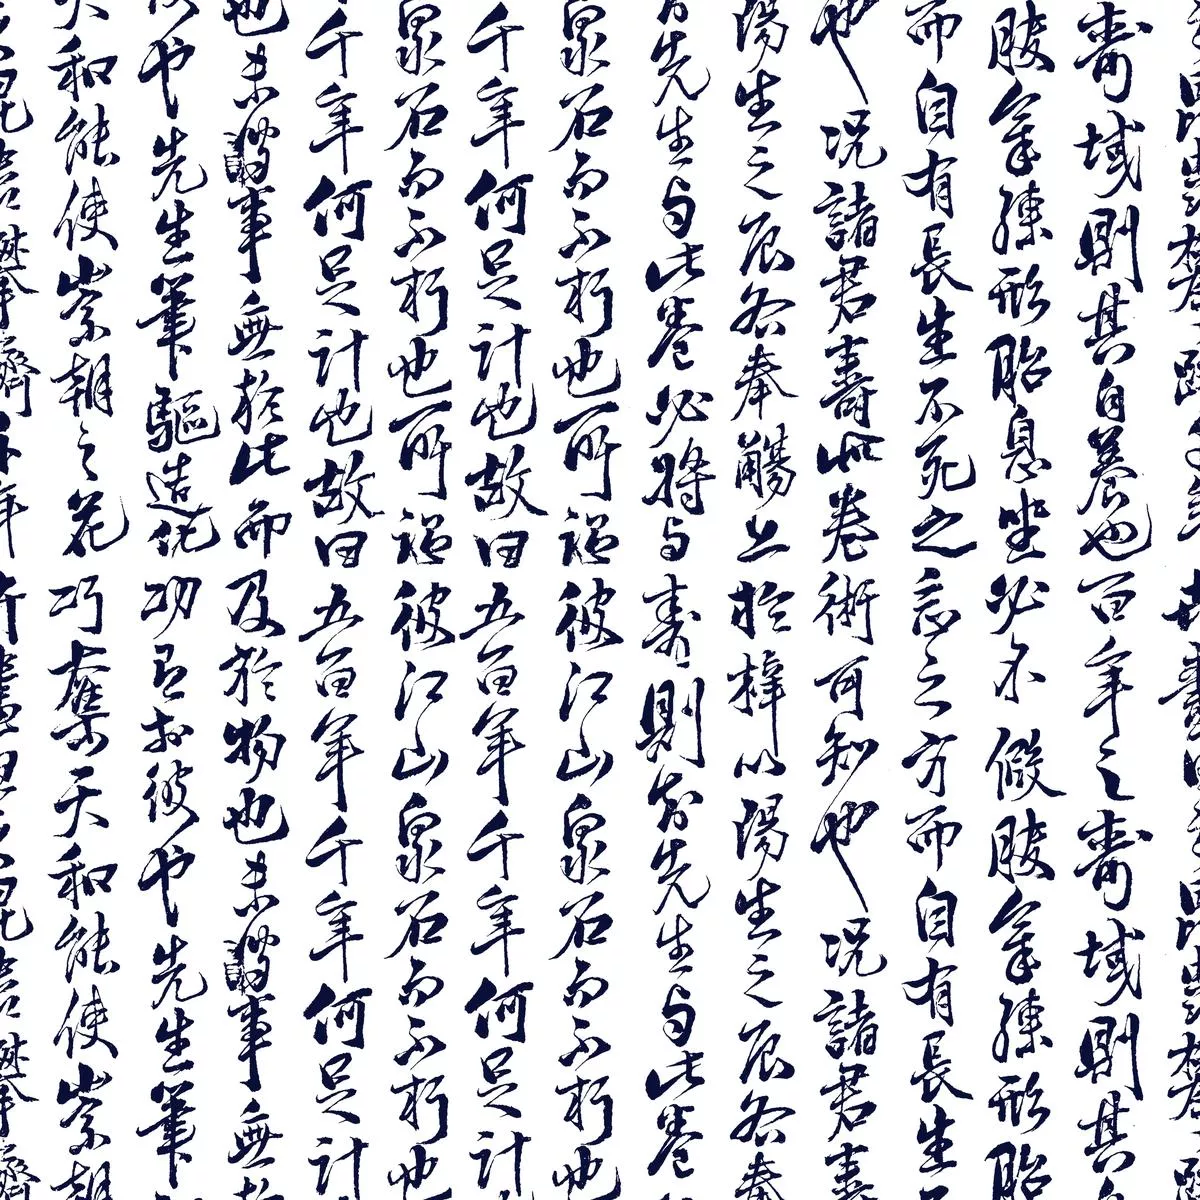 壽域則其自養也百年之壽域則其
服氣練形胎息坐必不假服氣練形胎
而自有長生不死之忘之方而自有長生
也況諸君壽此卷術可知也況諸君壽
陽生之辰各奉觴上於梓以陽生之辰各奉
有先生与此卷必將与壽則有先生与此卷
泉石而不朽也所謂彼江山泉石而不朽也
千年何足計也故曰五百年千年何足計
泉石而不朽也所謂彼江山泉石而不朽也
千年何足計也故曰五百年千年何足計
也未事無於此而及於物也未事無於
先生筆驅造化功彼先生筆
天和能使崇朝之花巧奪天和能使崇朝